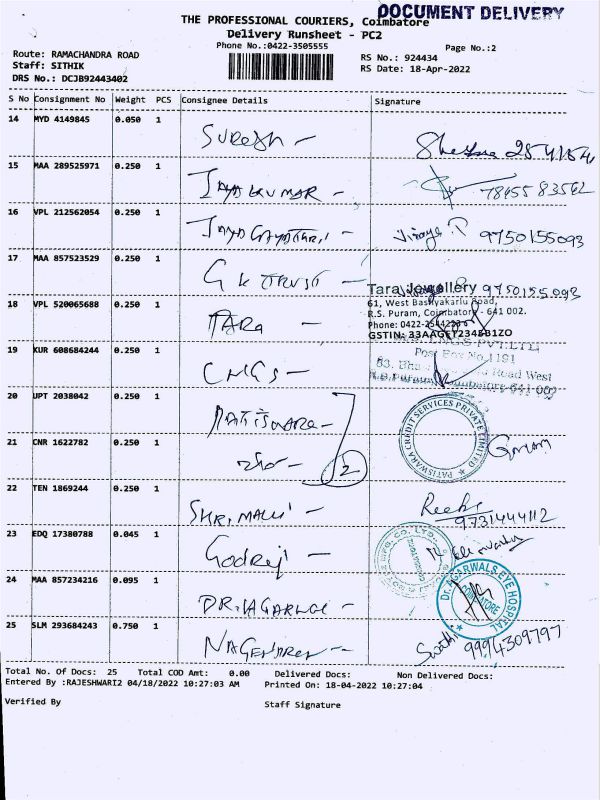 DOCUMENT DELIVERY
THE PROFESSIONAL COURIERS, Coimbatore
Delivery Runsheet - PC2
Phone No.:0422-3505555
Page No.:2
Route: RAMACHANDRA ROAD
Staff: SITHIK
DRS No.: DCJB92443402
RS No.: 924434
RS Date: 18-Apr-2022
S No Consignment No Weight PCS Consignee Details Signature
14 MYD 4149845 0.050 1 Suresh -
15 MAA 289525971 0.250 1 Jayakumar -
16 VPL 212562054 0.250 1 Jaya Gayathri - 9750155093
17 MAA 857523529 0.250 1 G K Trust - 9750155093
Tara Jewellery
61, West Basiyakarlu Road,
R.S. Puram, Coimbatore - 641 002.
18 VPL 520065688 0.250 1 TARA -
Phone: 0422-
GSTIN: 33AAGFT2348B1ZO
19 KUR 608684244 0.250 1 CMGS -
PVT.LTD
Post Box No.1191
Road West
641 002
20 UPT 2038042 0.250 1 Patiswara -
PATISWARA CREDIT SERVICES PRIVATE LIMITED
21 CNR 1622782 0.250 1 2
22 TEN 1869244 0.250 1 Shri Malli - 9731444112
23 EDQ 17380788 0.045 1 Godrej -
MFG. CO. LTD.
24 MAA 857234216 0.095 1 DR. AGARWAL -
Dr. AGARWALS EYE HOSPITAL
COIMBATORE
25 SLM 293684243 0.750 1 NAGENDREN - 9994309797
Total No. Of Docs: 25 Total COD Amt: 0.00 Delivered Docs: Non Delivered Docs:
Entered By :RAJESHWARI2 04/18/2022 10:27:03 AM Printed On: 18-04-2022 10:27:04
Verified By Staff Signature